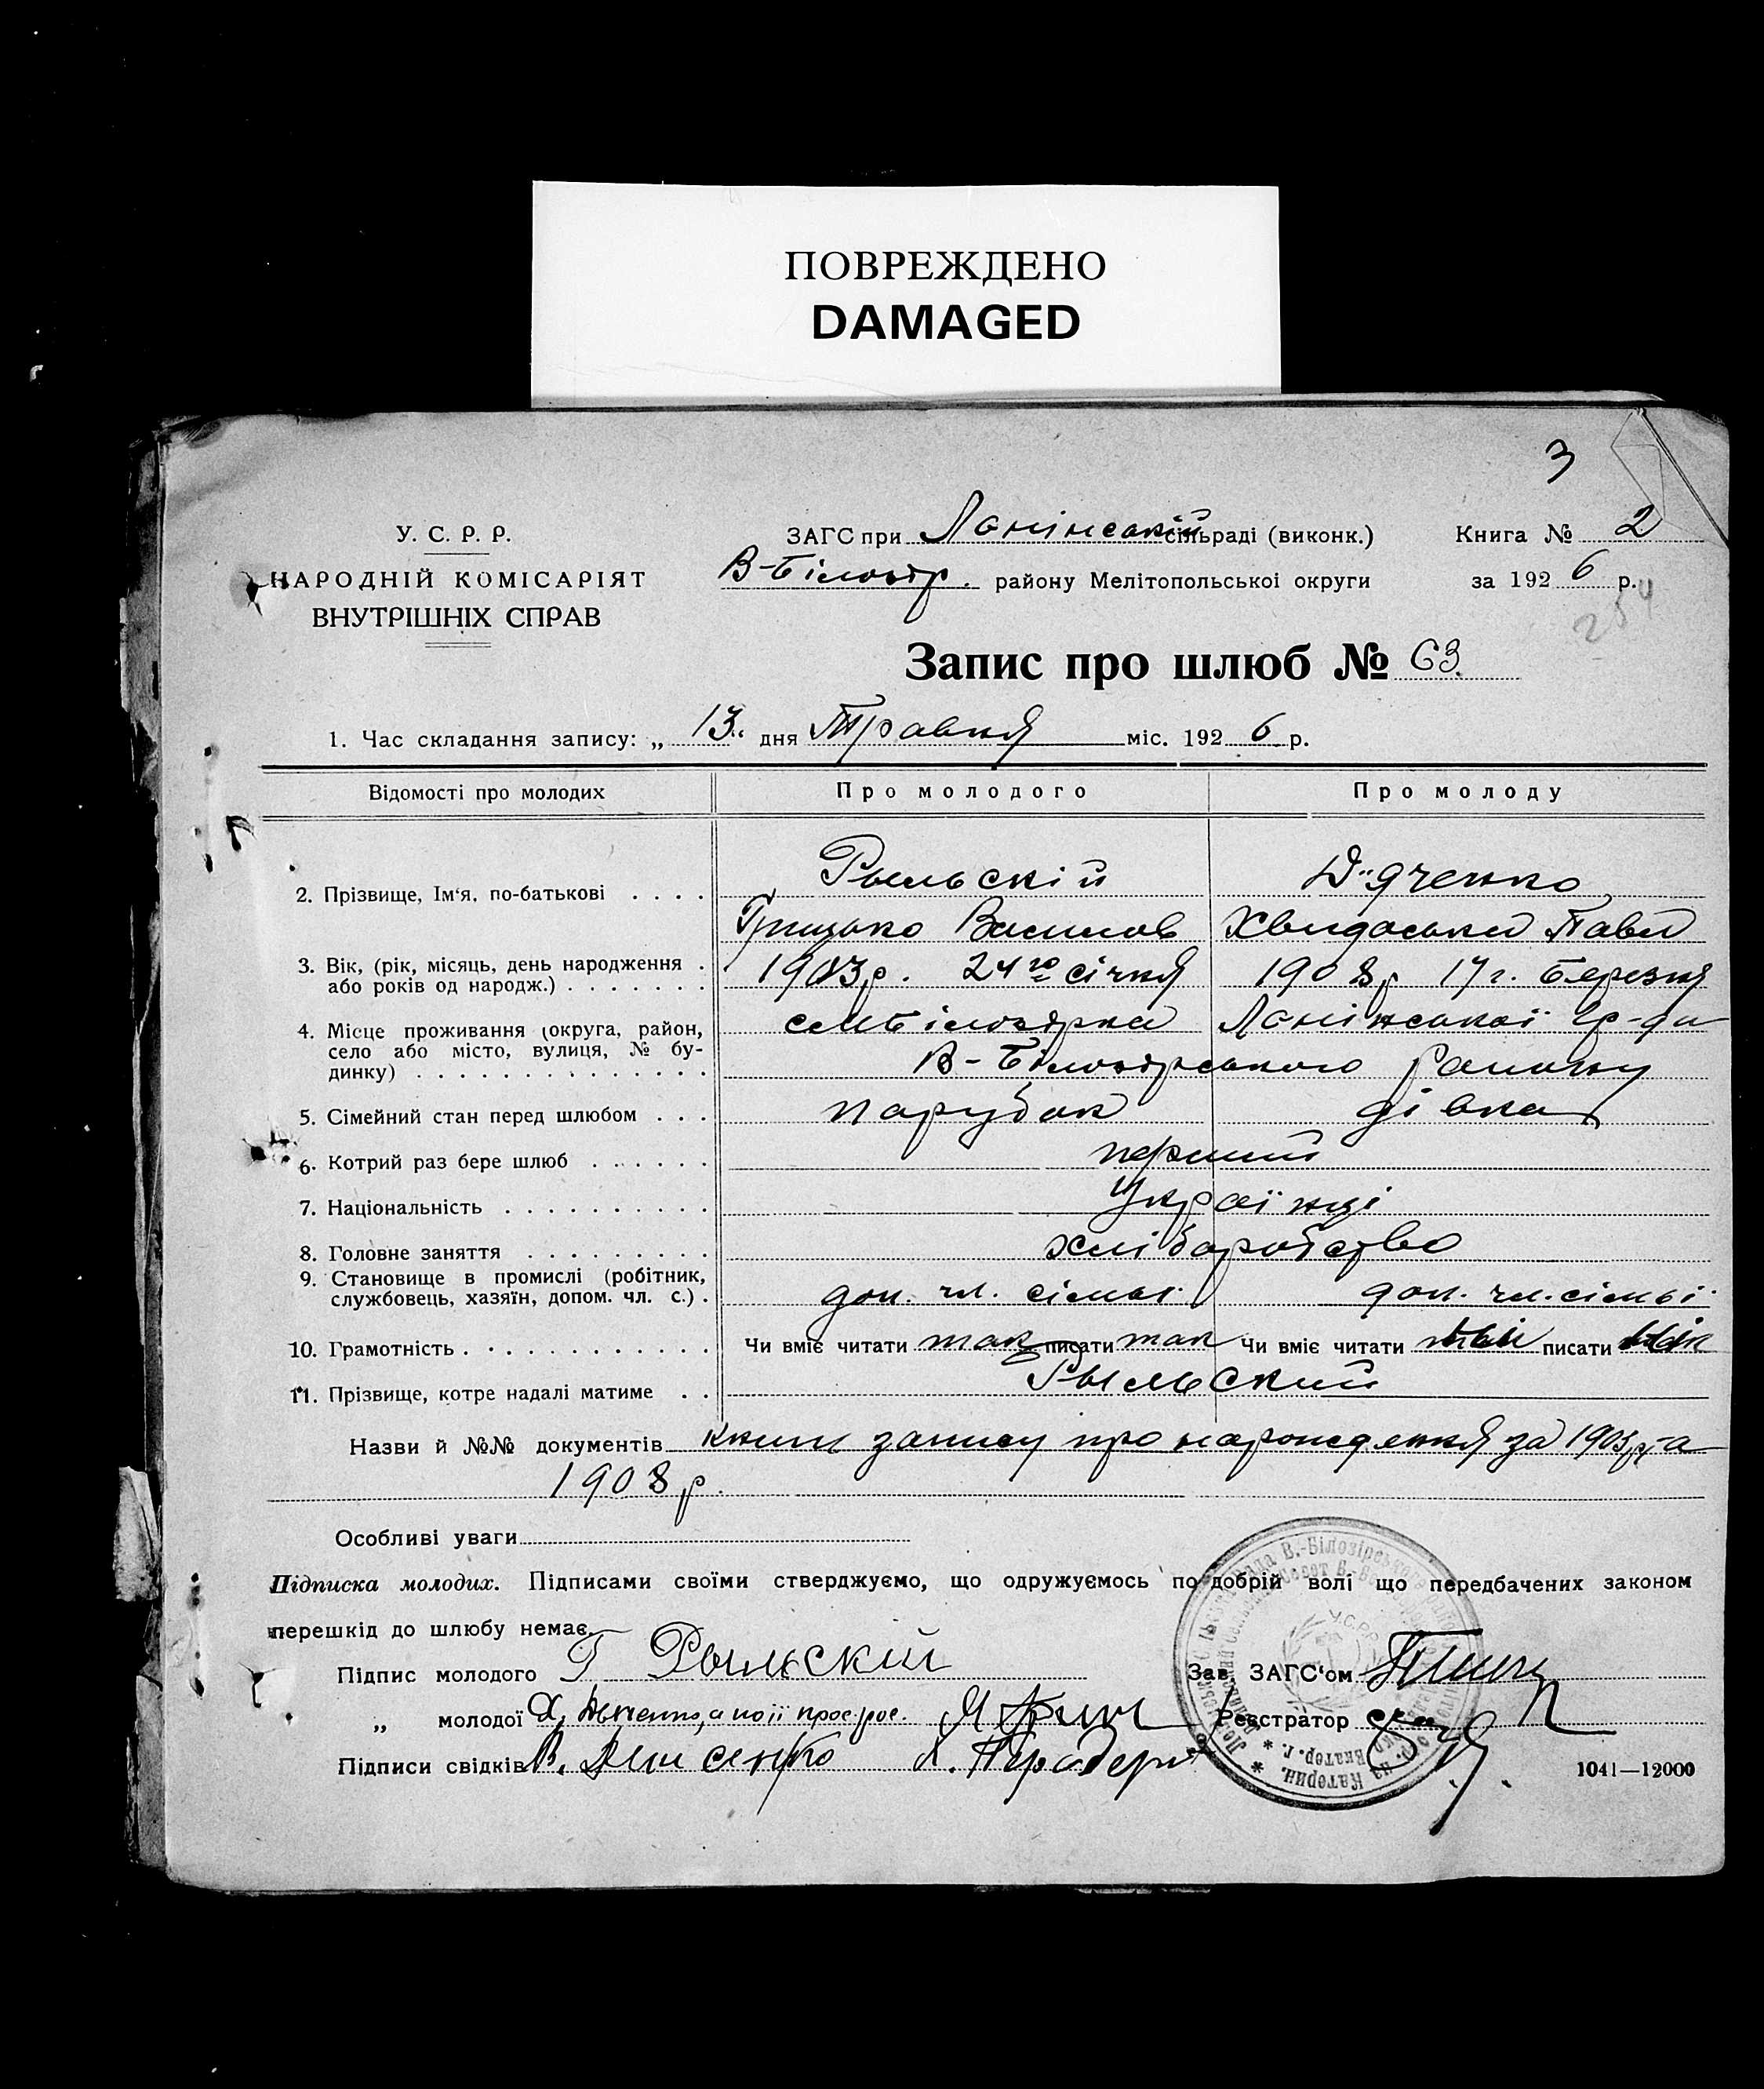 ПОВРЕЖДЕНО
DAMAGED
3
У. С. Р. Р.
НАРОДНІЙ КОМІСАРІЯТ
ВНУТРІШНІХ СПРАВ
ЗАГС при Лонінській сільраді (виконк.)
В-Білозір. району Мелітопольської округи
Книга № 2
за 1926 р.
254
Запис про шлюб № 63.
1. Час складання запису: „ 13 " дня Травня міс. 1926 р.
Відомості про молодих Про молодого Про молоду
2. Прізвище, Ім'я, по-батькові . . . . Рыльскій Д"яченко
Грицько Васильов Хвидоська Павл
3. Вік, (рік, місяць, день народження . або років од народж.) . . . . . . . 1903 р. 24го січня 1908 р 17 г. Березня
4. Місце проживання (округа, район, село або місто, вулиця, № будинку) . . . . . . . . . . . . . . . Білозірка Лонінської
В-Білозірського району
5. Сімейний стан перед шлюбом . . . парубок дівка
6. Котрий раз бере шлюб . . . . . . перший
7. Національність . . . . . . . . . . Українці
8. Головне заняття . . . . . . . . . хліборобство
9. Становище в промислі (робітник, службовець, хазяїн, допом. чл. с.) . доп. чл. сімьї доп. чл. сімьї
10. Грамотність . . . . . . . . . . . Чи вміє читати так писати так Чи вміє читати писати
11. Прізвище, котре надалі матиме . . Рыльский
Назви й №№ документів книги запису про народження за 1903 р та
1908 р.
Особливі уваги
Підписка молодих. Підписами своїми стверджуємо, що одружуємось по добрій волі що передбачених законом
перешкід до шлюбу немає.
Підпис молодого Г Рыльский
Зав. ЗАГС'ом
„ молодої Х.
Реєстратор
Підписи свідків В.
1041—12000